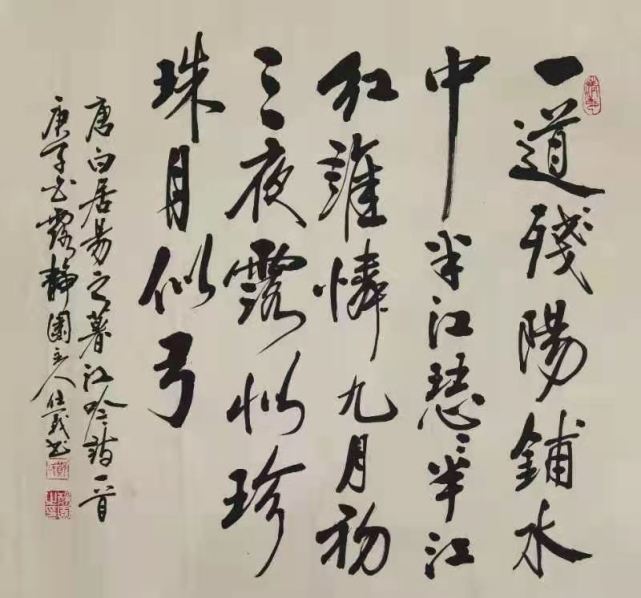 一道残陽鋪水
中半江瑟〻半江
红誰憐九月初
三夜露似珍
珠月似弓
唐白居易之暮江吟詩一首
庚子露静園主人仕義书